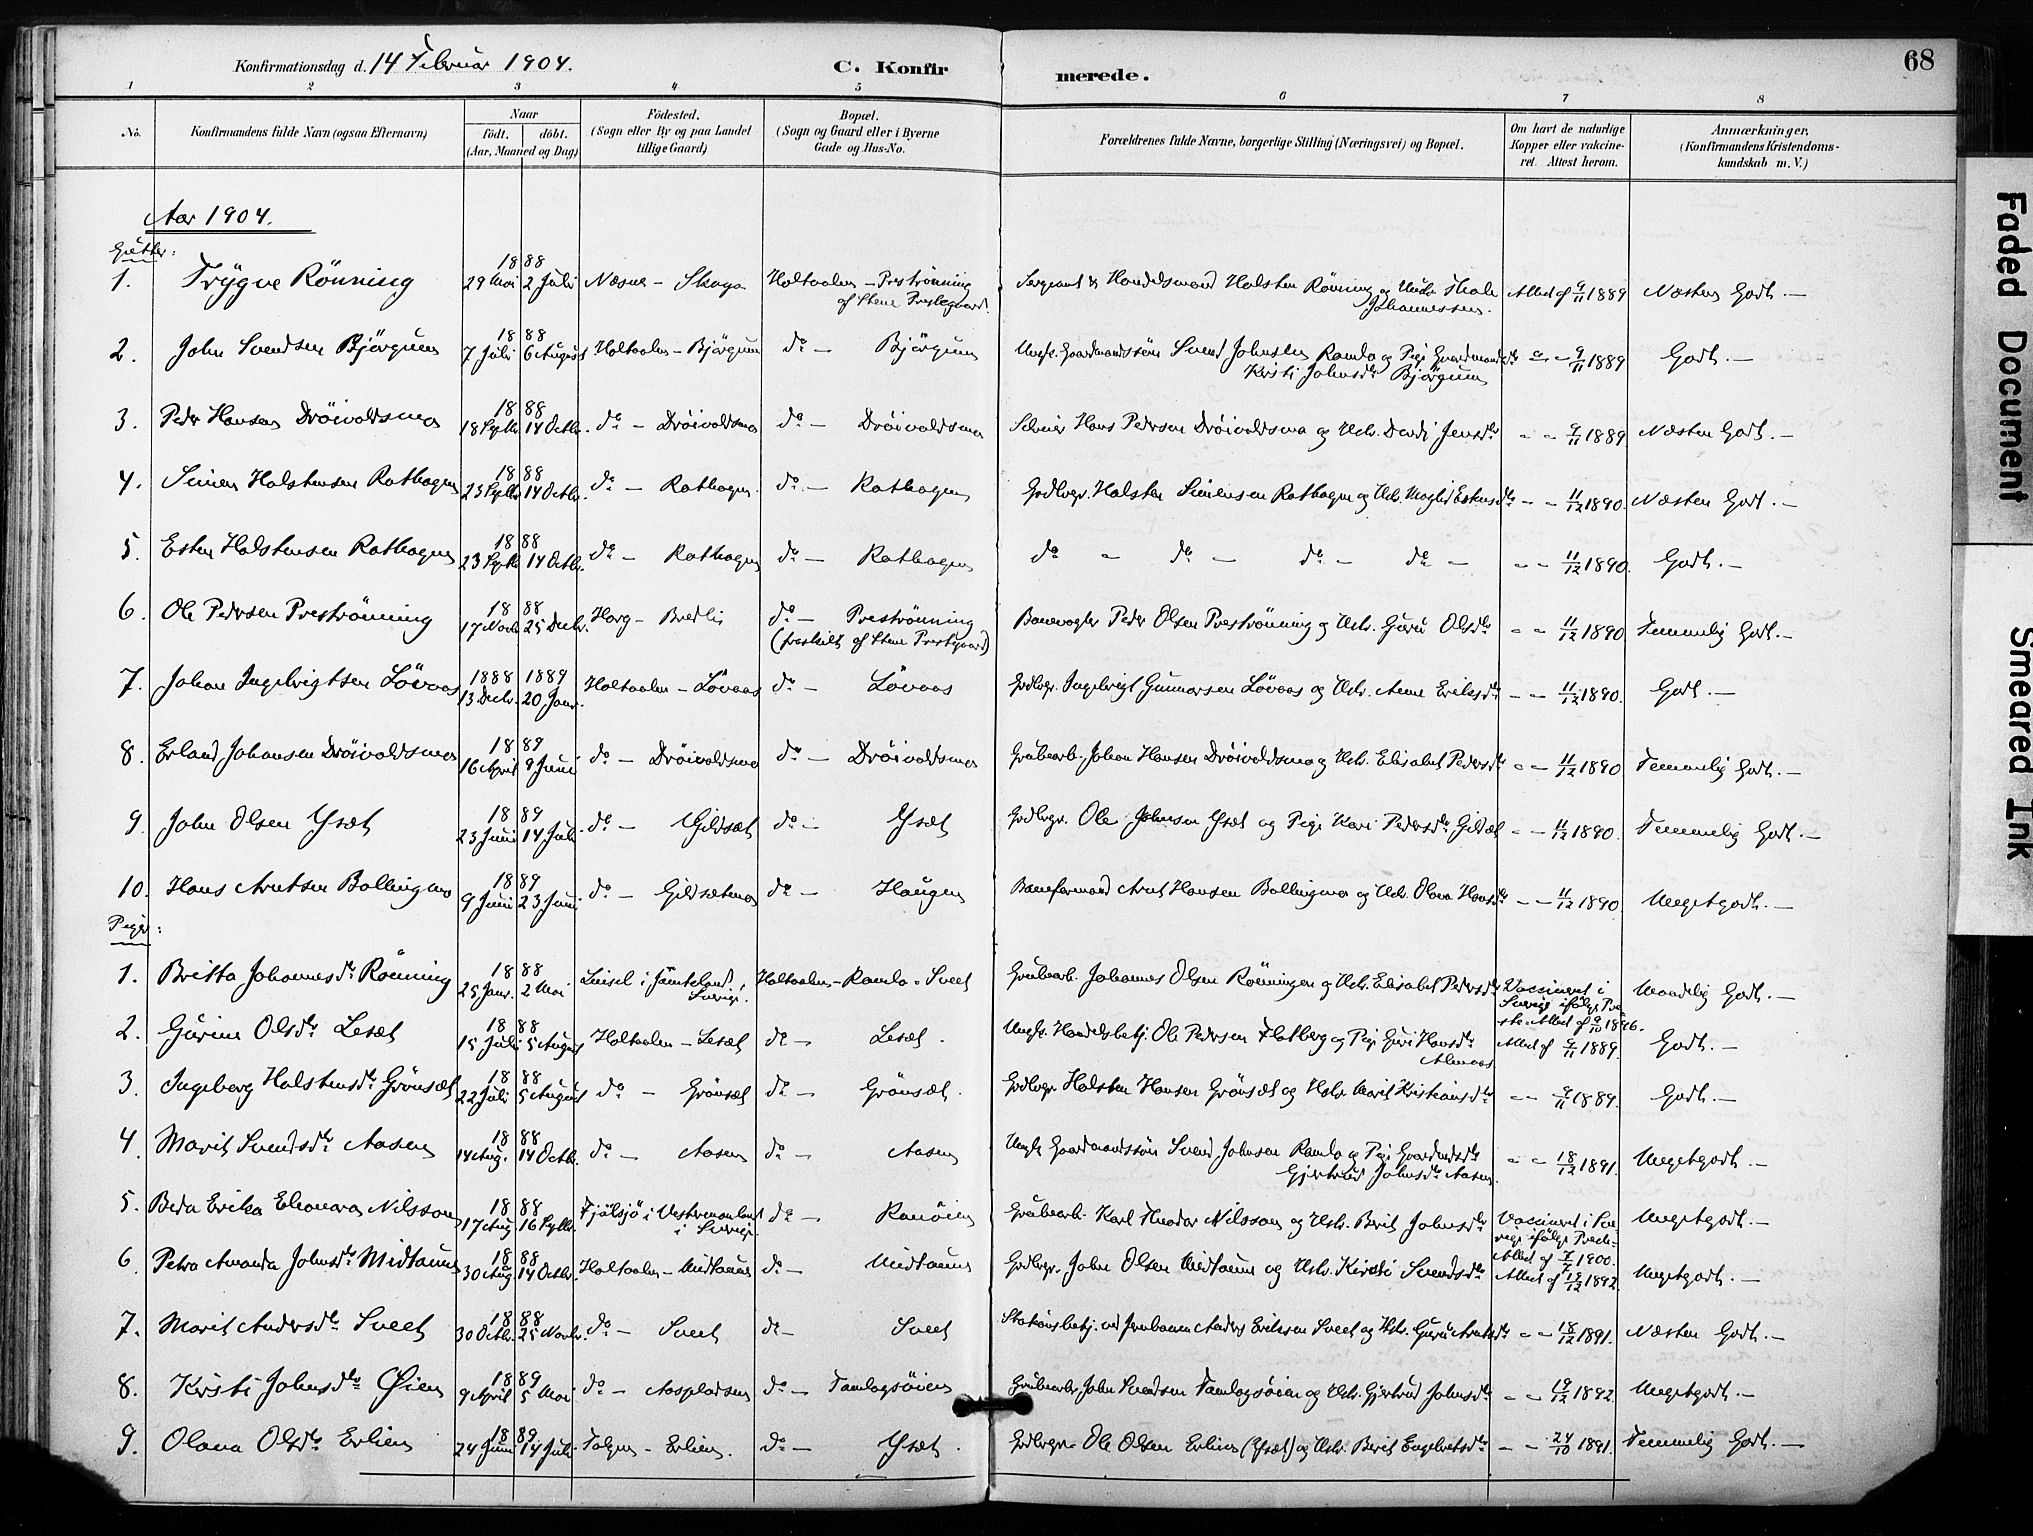 Konfirmationsdag d. 14 Februar 1904.
C. Konfirmerede.
68
1 2 3 4 5 6 7 8
No.
Konfirmandens fulde Navn (ogsaa Efternavn)
Naar
født. döbt.
(Aar, Maaned og Dag)
Födested.
(Sogn eller By og paa Landet
tillige Gaard)
Bopæl.
(Sogn og Gaard eller i Byerne
Gade og Hus-No.
Forældrenes fulde Navne, borgerlige Stilling (Næringsvei) og Bopæl.
Om havt de naturlige
Kopper eller vakcine-
ret. Attest herom.
Anmærkninger.
(Konfirmandens Kristendoms-
kundskab m. V.)
Aar 1904.
Gutter:
1. Trygve Rönning 1888 29 Mai 2 Juli Næsne - Skaga Holtaalen - Preströnning af Stene Prestegaard. Sergeant & Handelsmand Halsten Rönning og Johannessen. Attest af 9/11 1889 Næsten Godt. —
2. John Svendsen Björgum 1888 7 Juli 6 August Holtaalen - Björgum do - Björgum Ungk. Gaardmandssön Svend Johnsen Ramlo og Pige Gaardmandsdtr Kristi Johnsdtr Björgum " - 9/11 1889 Godt. —
3. Peder Hansen Dröivoldsmo 1888 18 Septbr 14 Octbr. do - Dröivoldsmo do - Dröivoldsmo Selveier Hans Pedersen Dröivoldsmo og Hstr. Dordi Jensdtr " - 9/11 1889 Næsten Godt. —
4. Simen Halstensen Rathagen 1888 23 Septbr 14 Octbr. do - Rathagen. do - Rathagen Grdbrgr. Halsten Simensen Rathagen og Hstr. Magli Estensdtr - - 11/12 1890. Næsten Godt. —
5. Esten Halstensen Rathagen 1888 23 Septbr 14 Octbr. do - Rathagen do - Rathagen do - do - do - do - - - 11/12 1890. Godt. —
6. Ole Pedersen Preströnning 1888 17 Novbr 25 Decbr. Horg - Bredli do - Preströnning (fraskilt af Stene Prestgaard) Banevogter Peder Olsen Preströnning og Hstr. Guru Olsdtr " - 11/12 1890 Temmelig Godt. —
7. Johan Ingebrigtsen Lövaas 1888 1889 13 Decbr. 20 Janr. Holtaalen - Lövaas do - Lövaas Grdbrgr. Ingebrigt Gunnarsen Lövaas og Hstr. Anne Eriksdtr - - 11/12 1890. Godt. —
8. Erland Johansen Dröivoldsmo 1889 16 April 9 Juni do - Dröivoldsmo do - Dröivoldsmo Grubearb. Johan Hansen Dröivoldsmo og Hstr. Elisabet Pedersdtr " - 11/12 1890 Temmelig Godt. —
9. John Olsen Ysæt 1889 23 Juni 14 Juli. do - Gildsæt do - Ysæt Grdbrgr. Ole Johnsen Ysæt og Pige Kari Pedersdtr Gildsæt - - 11/12 1890. Temmelig Godt. —
10. Hans Arntsen Bollingmo 1889 9 Juni 23 Juni do - Gildsætmo do - Haugen Baneformand Arnt Hansen Bollingmo og Hstr. Olava Hansdtr - - 11/12 1890. Megetgodt. —
Piger:
1. Britta Johannesdtr Rönning 1888 25 Janr. 2 Mai Linsel i Jämteland. Sverige. Holtaalen - Ramlo - Sveet Grubearb. Johannes Olsen Rönningen og Hstr. Elisabet Pedersdtr Vaccineret i Sverige ifölge Preste-Attest af 9/10 1896. Maadelig Godt. —
2. Gurine Olsdtr Lesæt 1888 15 Juli 5 August Holtaalen - Lesæt do - Lesæt. Ungk. Handelsbetj. Ole Pedersen Flatberg og Pige Guri Hansdtr Almaas Attest af 9/11 1889. Godt. —
3. Ingeborg Halstensdtr Grönsæt 1888 22 Juli 5 August do - Grönsæt do - Grönsæt. Grdbrgr. Halsten Hansen Grönsæt og Hstr. Marit Kristiansdtr - - 9/11 1889. Godt. —
4. Marit Svendsdtr Aasen 1888 14 Aug. 14 Octbr. do - Aasen do - Aasen Ungk. Gaardmandssön Svend Johnsen Ramlo og Pige Gaardmdsdtr Gjertrud Johnsdtr Aasen " - 18/12 1891. Megetgodt. —
5. Beda Erika Eleonora Nilsson 1888 17 Aug 16 Septbr. Fjölsjö i Vestremanland i Sverige do - Ranöien Grubearb. Karl Theodor Nilsson og Hstr. Berit Johnsdtr Vaccineret i Sverige ifölge Preste-Attest af 7/7 1900. Megetgodt. —
6. Petra Amanda Johnsdtr Midtaune 1888 30 Aug 14 Octbr. Holtaalen - Midtaune do - Midtaune Grdbrgr. John Olsen Midtaune og Hstr. Kirsti Svendsdtr Attest af 19/12 1892. Megetgodt. —
7. Marit Andersdtr Sveet 1888 30 Octbr. 25 Novbr. do - Sveet do - Sveet Stationsbetj. ved Jernbanen Anders Eriksen Sveet og Hstr. Guru Arntsdtr " - 18/12 1891. Næsten Godt. —
8. Kristi Johnsdtr Øien 1889 9 April 5 Mai do - Aaspladsen do - Tamlagsöien Grubearb. John Svendsen Tamlagsöien og Hstr. Gjertrud Johnsdtr " - 19/12 1892. Megetgodt. —
9. Olava Olsdtr Erlien 1889 24 Juni 14 Juli Tolgen - Erlien. do - Ysæt. Grdbrgr. Ole Olsen Erlien (Ysæt) og Hstr. Berit Engebretsdtr - - 24/10 1891. Temmelig Godt. —
Faded Document
Smeared Ink